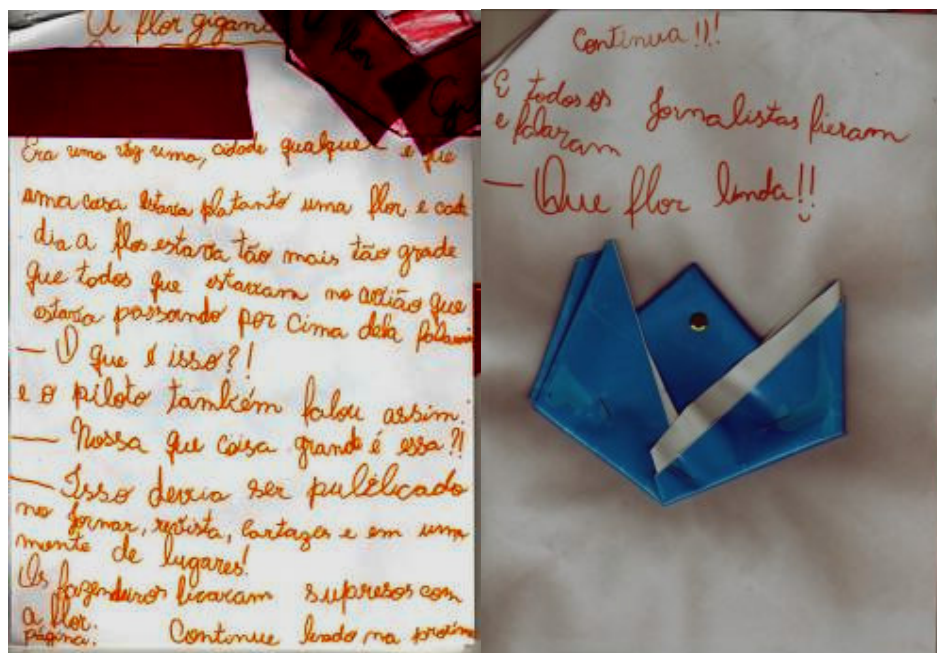 A flor gigan
flor
Era uma vez uma, cidade qualque e que
uma casa estava platanto uma flor e cada
dia a flor estava tão mais tão grade
que todos que estavam no avião que
estava passando por cima dela falavam
— O que é isso?!
e o piloto também falou assim:
— Nossa que coisa grande é essa?!
— Isso devia ser publicado
no jornar, revista, cartazes e em uma
mente de lugares!
Os fazendeiros ficaram supresos com
a flor.
página. Continue lendo na proxima
Continua!!!
E todos os jornalistas fieram
e falaram
— Que flor linda!!